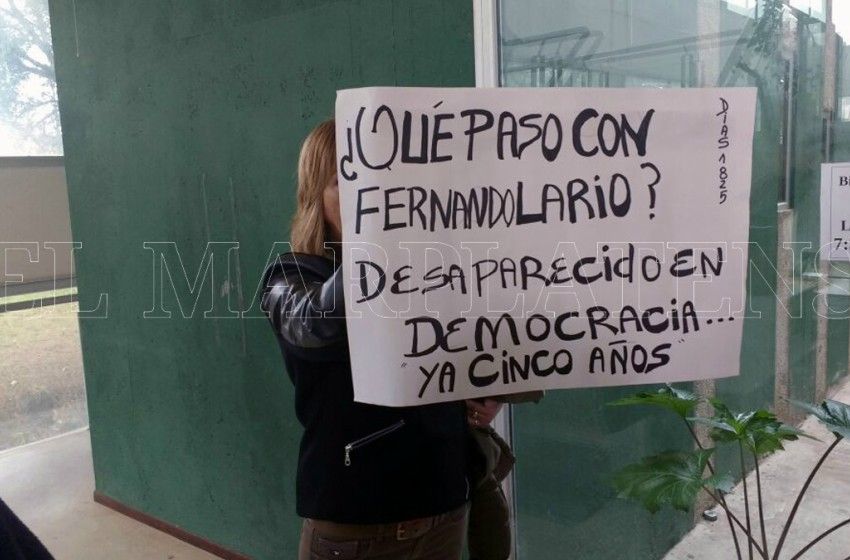 ¿QUÉ PASO CON
FERNANDO LARIO?
DESAPARECIDO EN
DEMOCRACIA...
"YA CINCO AÑOS"
DIAS 1825
EL MARPLATENS
B
L
7: